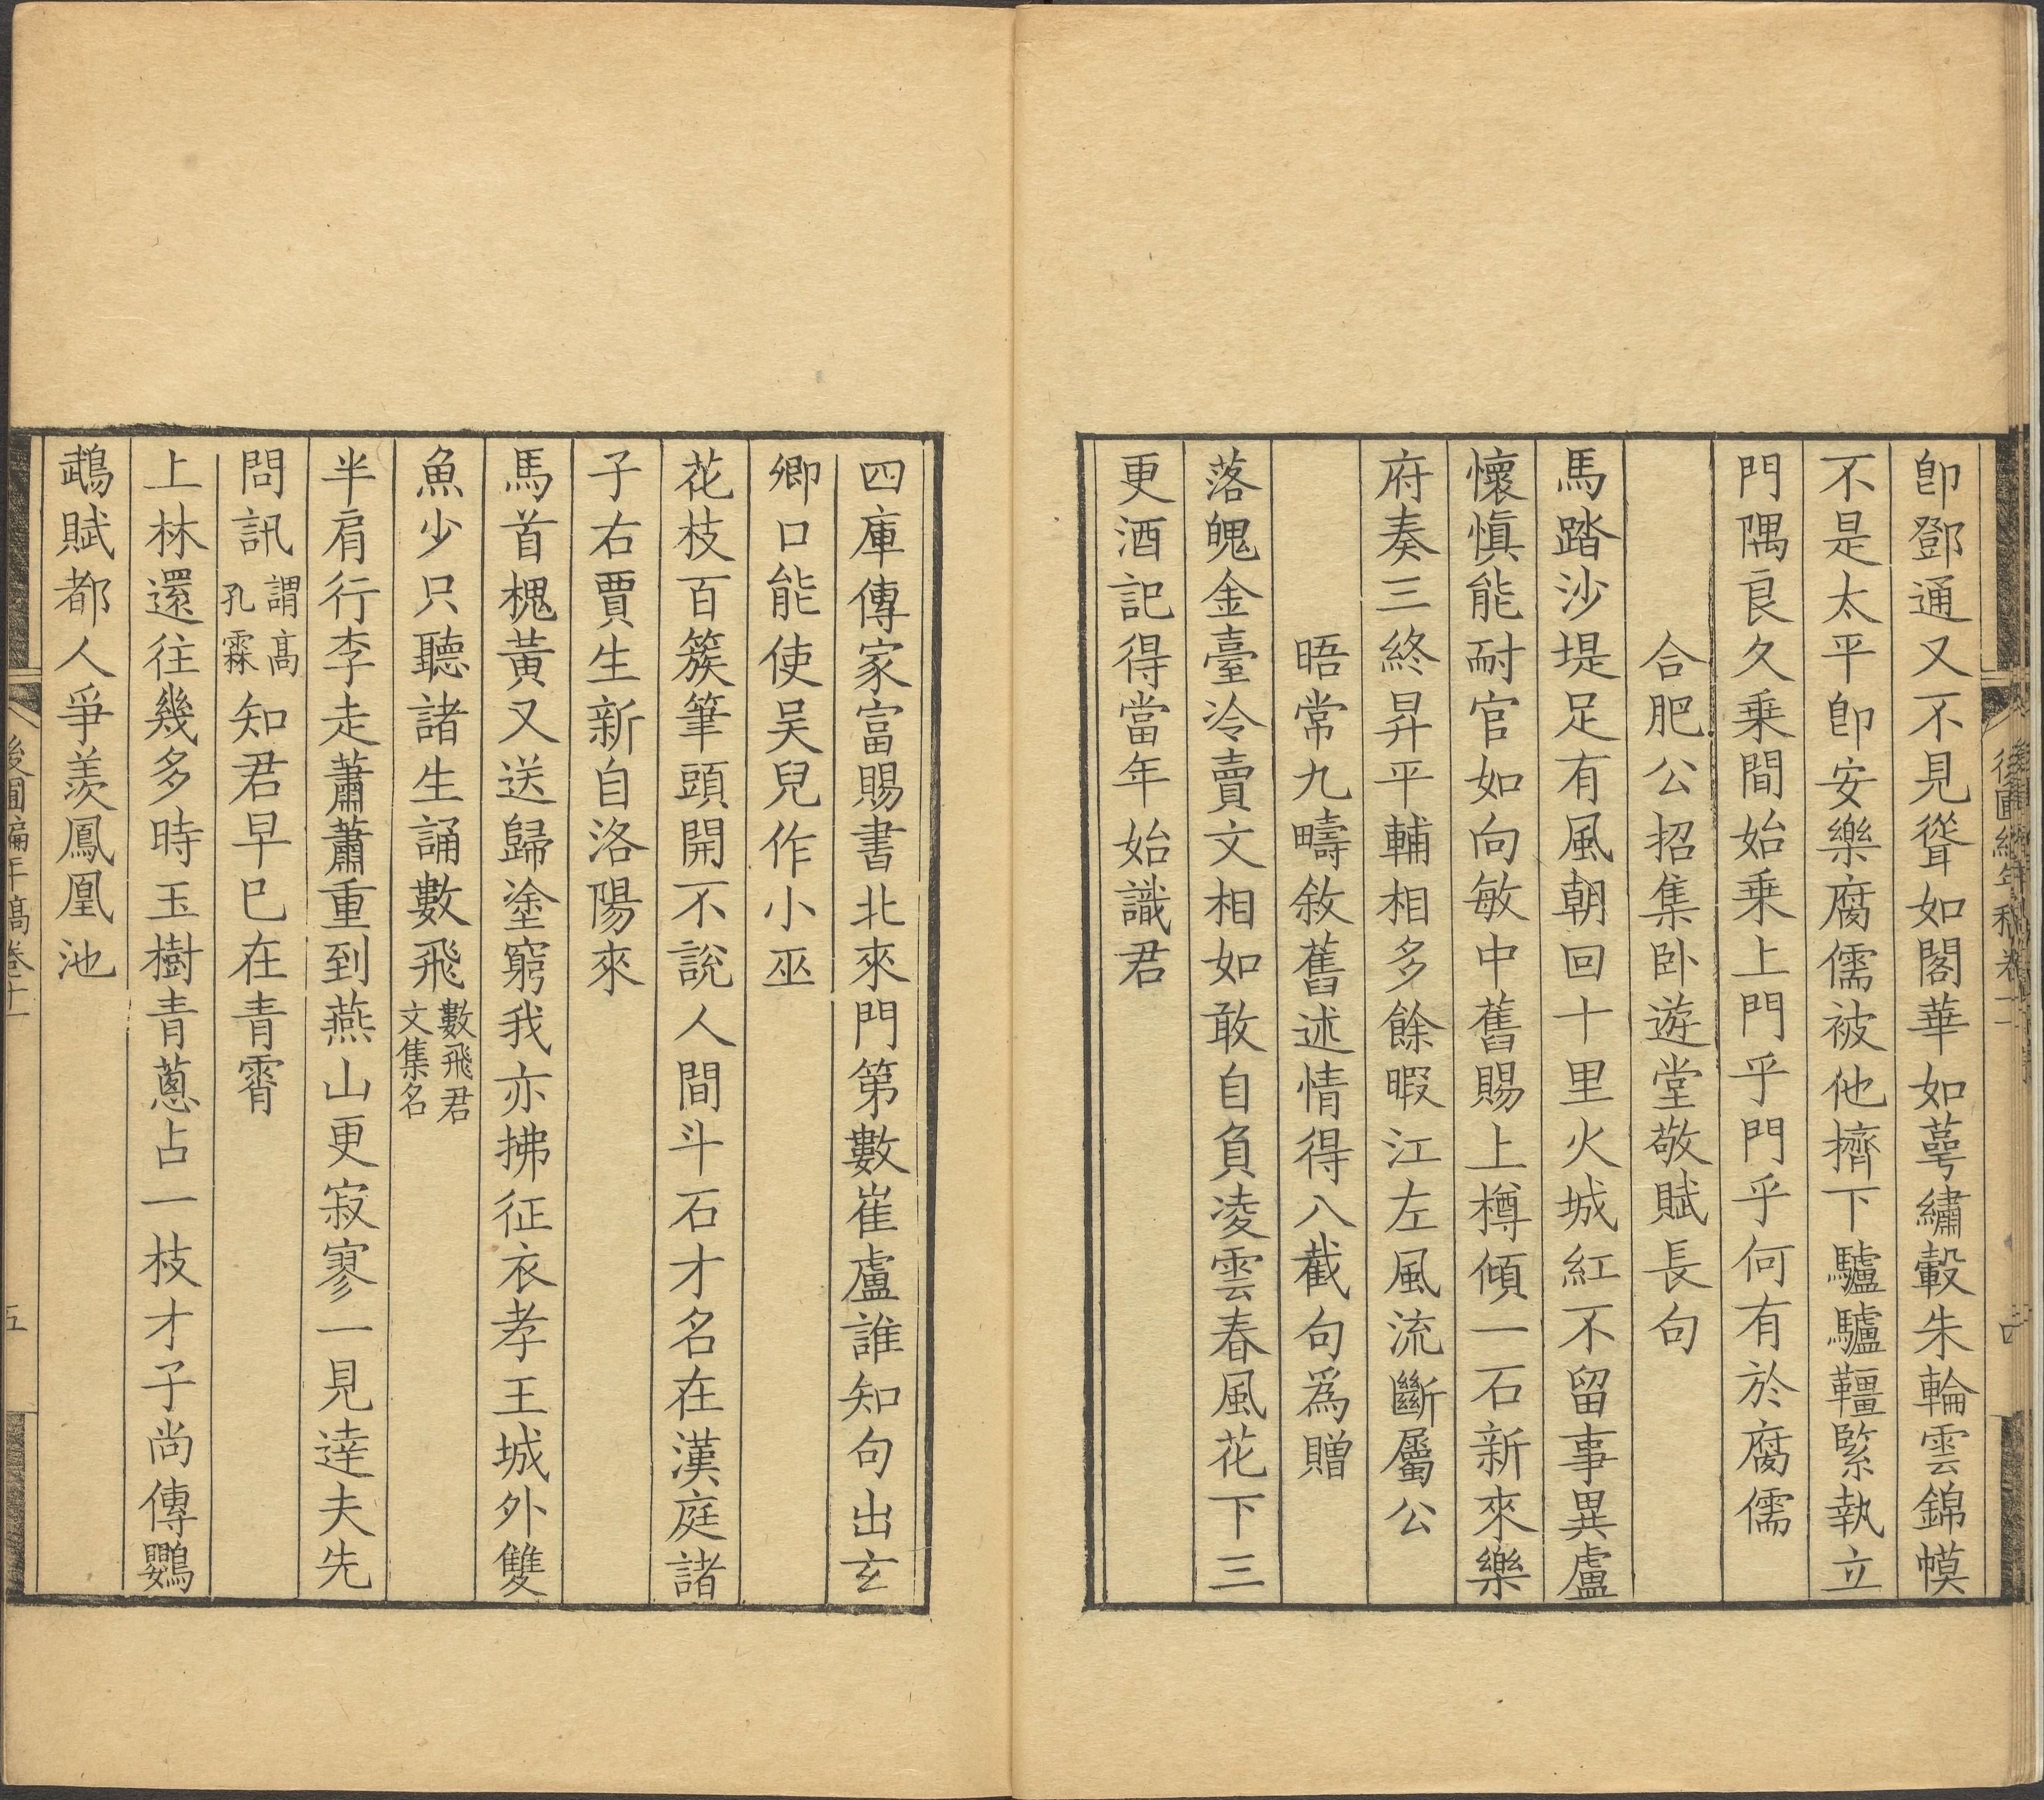 卽鄧通又不見聳如閣華如萼繡轂朱輪雲錦幙
不是太平卽安樂腐儒被他擠下驢驢韁緊執立
門隅良久乘間始乘上門乎門乎何有於腐儒
合肥公招集卧遊堂敬賦長句
馬踏沙堤足有風朝回十里火城紅不留事異盧
懷慎能耐官如向敏中舊賜上樽傾一石新來樂
府奏三終昇平輔相多餘暇江左風流斷屬公
晤常九疇敘舊述情得八截句爲贈
落魄金臺冷賣文相如敢自負凌雲春風花下三
更酒記得當年始識君
四庫傳家富賜書北來門第數崔盧誰知句出玄
卿口能使吴兒作小巫
花枝百簇筆頭開不說人間斗石才名在漢庭諸
子右賈生新自洛陽來
馬首槐黃又送歸塗窮我亦拂征衣孝王城外雙
魚少只聽諸生誦數飛數飛君文集名
半肩行李走蕭蕭重到燕山更寂寥一見達夫先
問訊謂高孔霖知君早巳在青霄
上林還往幾多時玉樹青蔥占一枝才子尚傳鸚
鵡賦都人爭羨鳳凰池
後圃編年稿卷十一
五